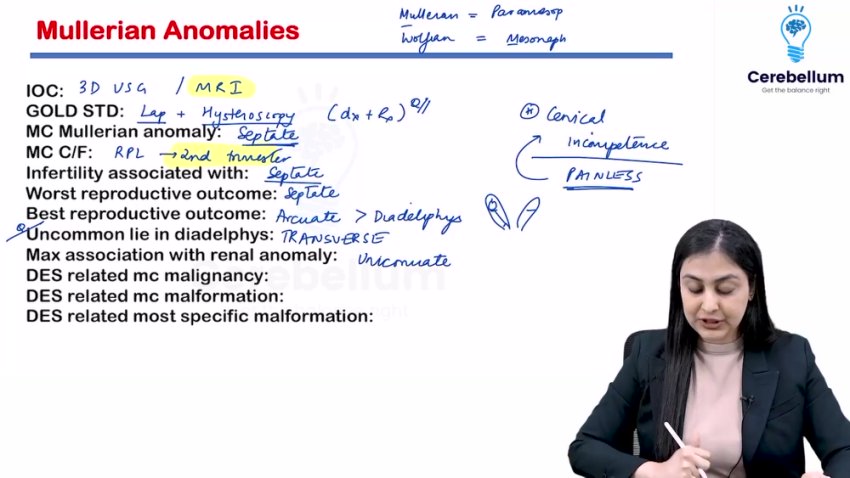 Mullerian Anomalies
Mullerian = Paramesop
Wolfian = Mesoneph
Cerebellum
Get the balance right
IOC: 3D USG / MRI
GOLD STD: Lap + Hysteroscopy (dx + Rx) Q//
MC Mullerian anomaly: Septate
MC C/F: RPL → 2nd trimester
Infertility associated with: Septate
Worst reproductive outcome: Septate
Best reproductive outcome: Arcuate > Diadelphys
Uncommon lie in diadelphys: TRANSVERSE
Max association with renal anomaly: Unicornuate
DES related mc malignancy:
DES related mc malformation:
DES related most specific malformation:
Cervical
incompetence
PAINLESS